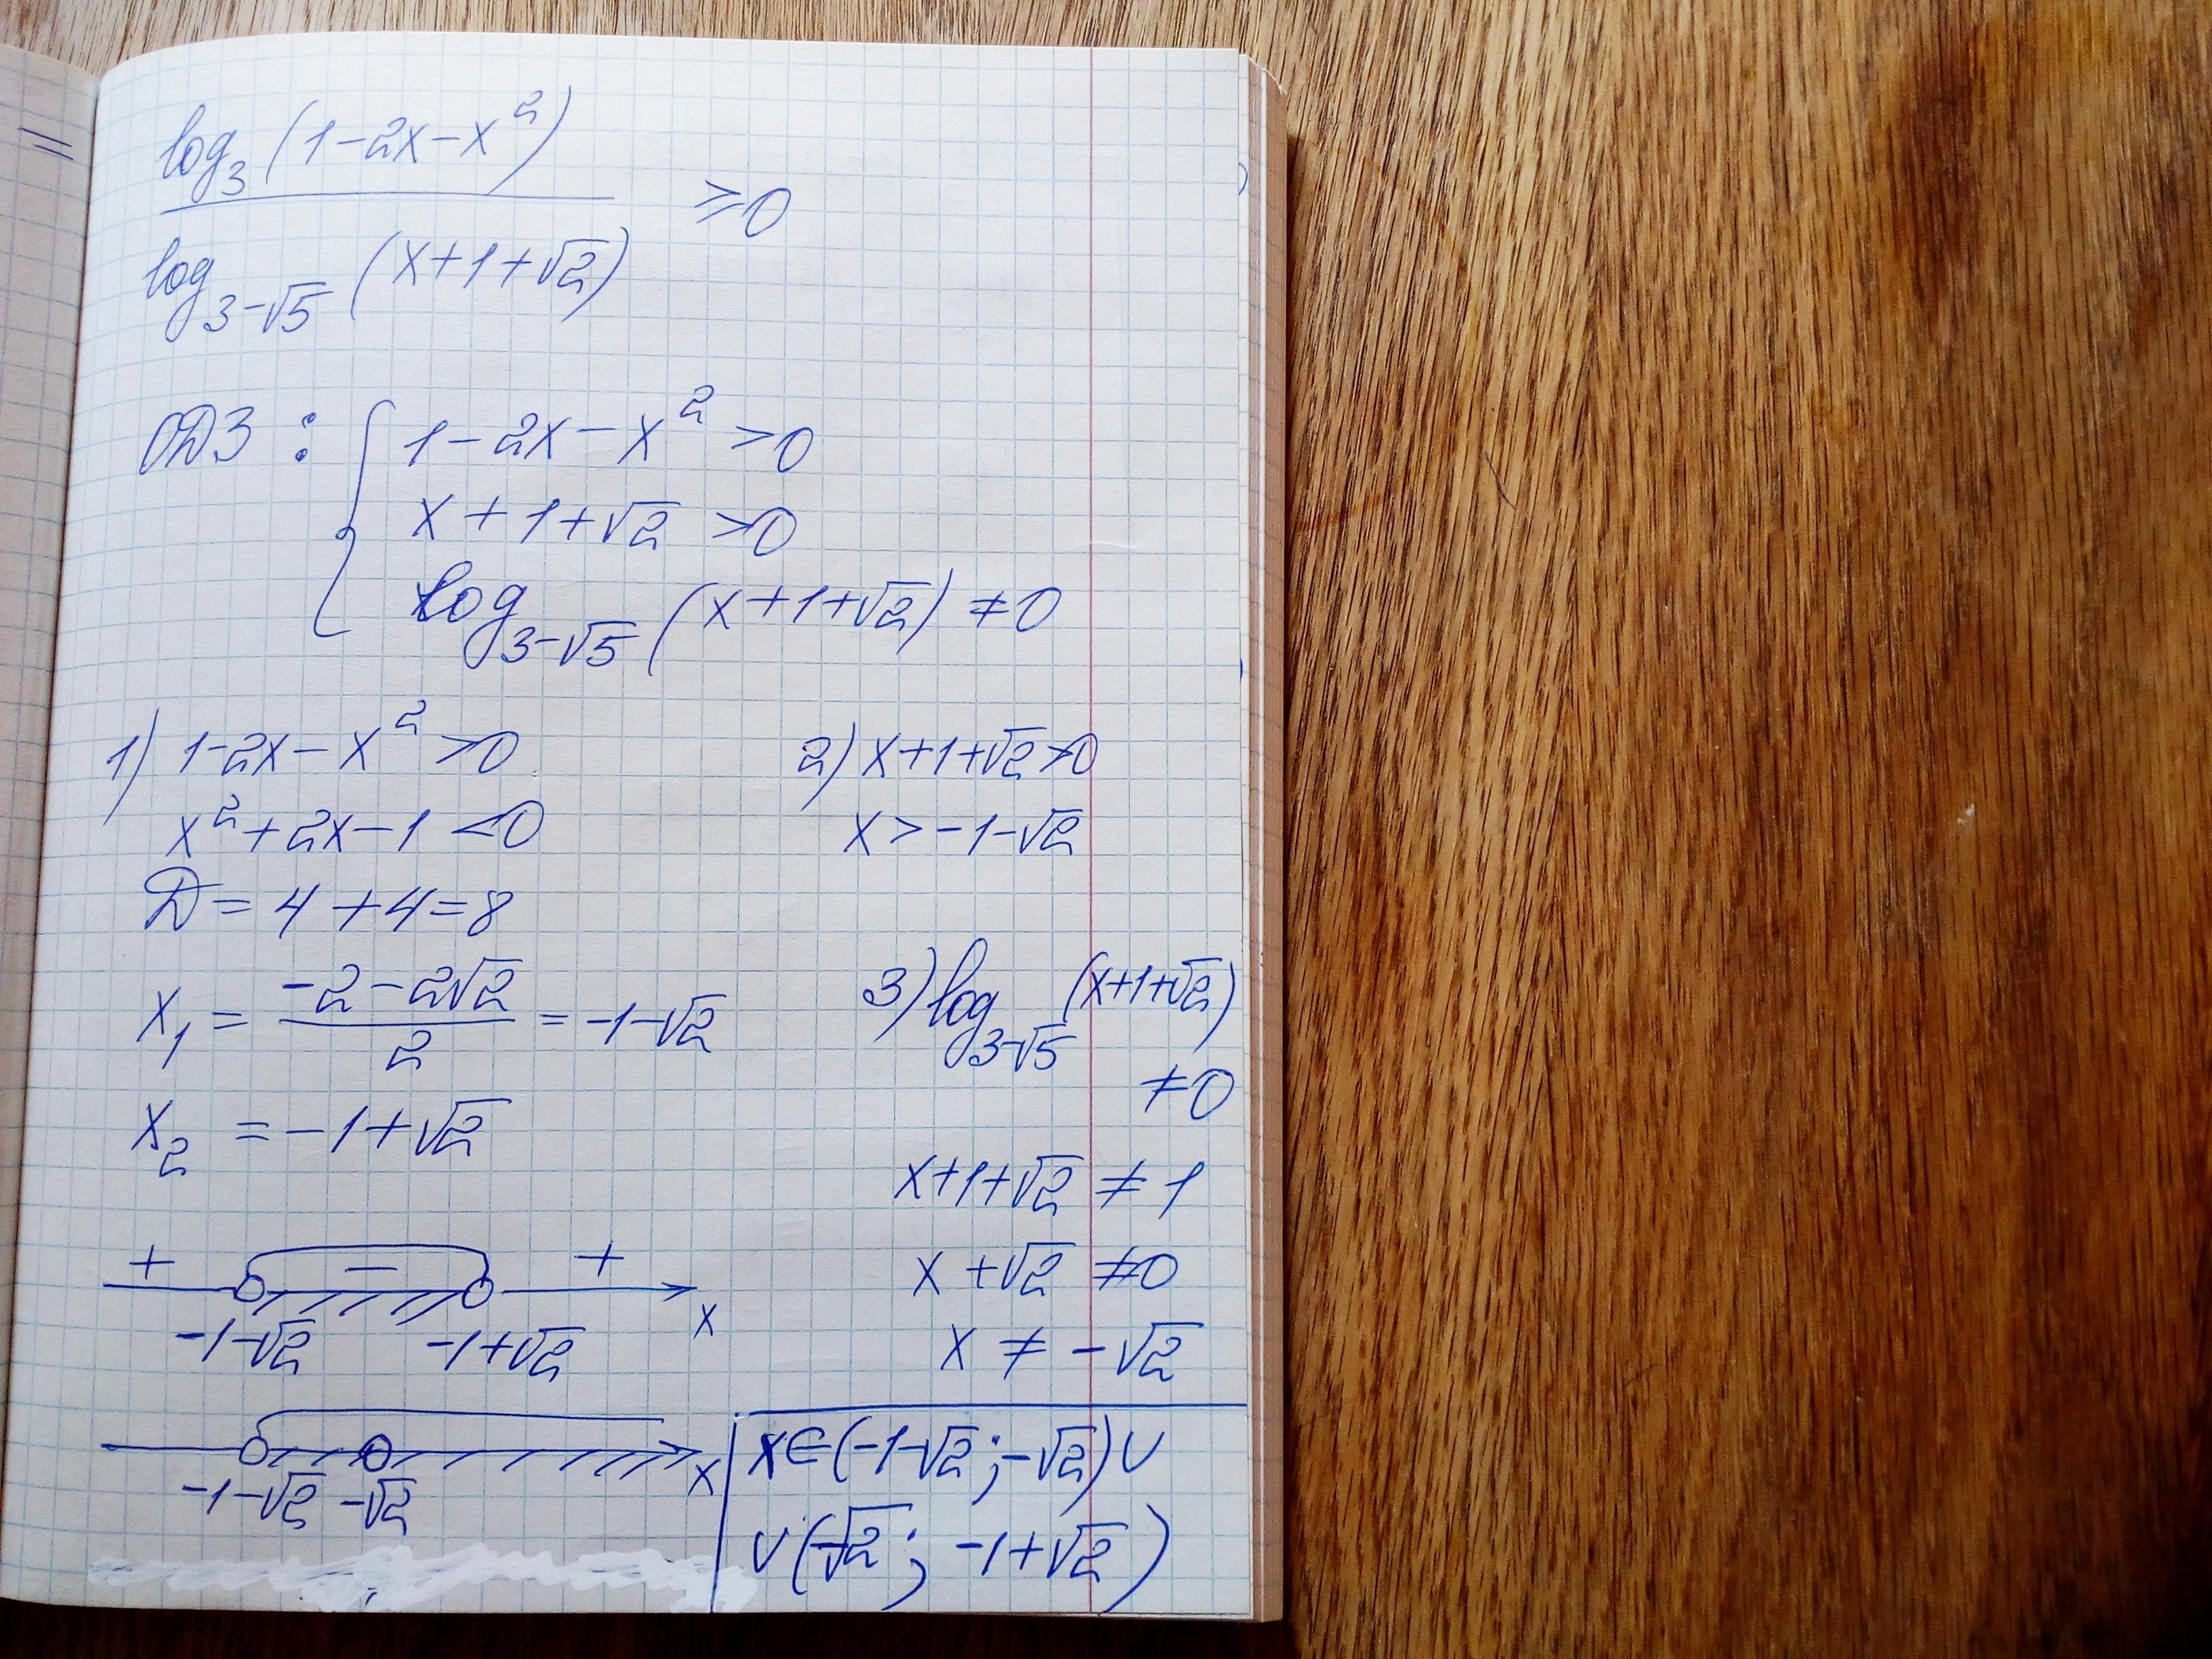 log₃(1-2x-x²)
≥0
log₃₋√₅(x+1+√2)
ОДЗ : { 1-2x-x² >0
x+1+√2 >0
log₃₋√₅(x+1+√2) ≠0
1) 1-2x-x² >0
x²+2x-1 <0
D = 4+4=8
x₁ = (-2-2√2)/2 = -1-√2
x₂ = -1+√2
+ - +
-1-√2 -1+√2 x
-1-√2 -√2 x
2) x+1+√2>0
x > -1-√2
3) log₃₋√₅(x+1+√2)
≠0
x+1+√2 ≠ 1
x+√2 ≠0
x ≠ -√2
x∈(-1-√2;-√2)∪
∪(-√2; -1+√2)